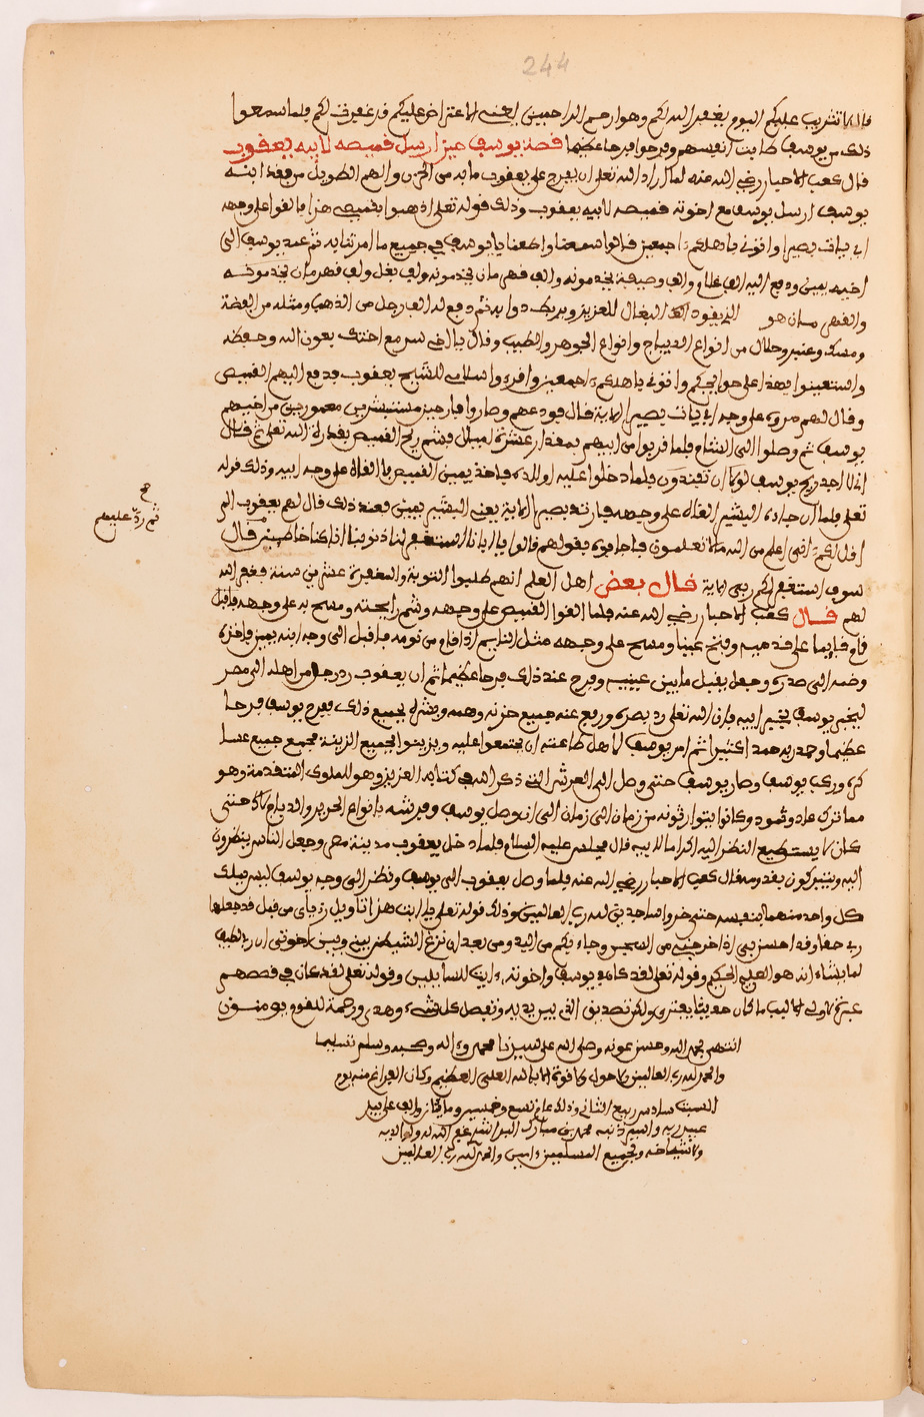 244
قال لا تثريب عليكم اليوم يغفر الله لكم وهو ارحم الراحمين يعني لا اعتراض عليكم قد غفرت لكم فلما سمعوا
ذلك من يوسف طابت انفسهم وفرحوا فرحا عظيما قصة يوسف حين ارسل قميصه لابيه يعقوب
قال كعب الاحبار رضي الله عنه لما اراد الله تعلى ان يفرج على يعقوب ما به من الحزن والهم الطويل من فقد ابنه
يوسف ارسل يوسف مع اخوته قميصه لابيه يعقوب وذلك قوله تعلى اذهبوا بقميصي هذا فالقوه على وجه
ابي يات بصيرا واتوني باهلكم اجمعين قالوا سمعنا واطعنا يا يوسف في جميع ما امرتنا به ثم عمد يوسف الى
اخيه ودفع اليه الف غلام والف وصيفة يخدمونه والف بغل والف قهرمان يخدمونه
والقهرمان هو الذي يقود البغال للعزيز ويربط دوابه ثم دفع له الف رجل من الذهب ومثله من الفضة
ومسك وعنبر وحلل من انواع الديباج وانواع الجوهر والطيب وقال يا اخي سر مع اخوتك بعون الله وحفظه
واستعينوا بهذا على حوايجكم واتوني باهلكم اجمعين واقرءوا سلامي للشيخ يعقوب فدفع اليهم القميص
وقال لهم مروه على وجه ابي يات بصيرا الاية قال فودعهم وصاروا فارحين مستبشرين من اخيهم
يوسف ثم وصلوا الى الشام فلما قربوا من ابيهم بمقدار عشرة اميال فشم ريح القميص بقدرة الله تعلى فقال
اني لاجد ريح يوسف لولا ان تفندون فلما دخلوا عليه اولاده فاخذ القميص فالقاه على وجه ابيه وذلك قوله
تعلى فلما ان جاءه البشير القاه على وجهه فارتد بصيرا الاية يعني البشير فعند ذلك قال لهم يعقوب الم
اقل لكم اني اعلم من الله ما لا تعلمون فاجابوه بقولهم قالوا يا ابانا استغفر لنا ذنوبنا انا كنا خاطين قال
سوف استغفر لكم ربي الاية قال بعض اهل العلم انهم طلبوا التوبة والمغفرة عشرين سنة فغفر الله
لهم قال كعب الاحبار رضي الله عنه فلما القوا القميص على وجهه وشم رايحته ومسح به على وجهه
قام قايما على قدميه وفتح عينيه ومسح على وجهه مثل النايم اذا قام من نومه فاقبل الى وجه ابنه
وضمه الى صدره وجعل يقبل ما بين عينيه وفرح عند ذلك فرحا عظيما ثم ان يعقوب رد رجل من اهله الى مصر
ليخبر يوسف بخبر ابيه فان الله تعلى رد بصره ورفع عنه جميع حزنه وهمه وبشره بجميع ذلك ففرح يوسف فرحا
عظيما وحمد ربه حمدا كثيرا ثم امر يوسف لاهل طاعته ان يجتمعوا عليه ويزينوا بجميع الزينة فجمع جميع عسا
كره وركب يوسف وصار يوسف حتى وصل الى العرش الذي ذكر الله في كتابه العزيز وهو للملوك المتقدمة وهو
مما ترك عاد وثمود وكانوا يتوارثونه من زمان الى زمان الى ان وصل يوسف وفرشه بانواع الحرير والديباج حتى
كان لا يستطيع النظر اليه اكراما لابيه قال فجلس عليه السلام فلما دخل يعقوب مدينة مصر وجعل الناس ينظرون
اليه ويتبركون بقدومه قال كعب الاحبار رضي الله عنه فلما وصل يعقوب الى يوسف ونظر الى وجه يوسف
كل واحد منهما بنفسه حتى خروا ساجدين لله رب العالمين وذلك قوله تعلى يا ابت هذا تاويل رءياي من قبل قد جعلها
ربي حقا وقد احسن بي اذ اخرجني من السجن وجاء بكم من البدو من بعد ان نزغ الشيطان بيني وبين اخوتي ان ربي لطيف
لما يشاء انه هو العليم الحكيم وقوله تعلى لقد كان في يوسف واخوته ءايات للسايلين وقوله تعلى لقد كان في قصصهم
عبرة لاولي الالباب ما كان حديثا يفترى ولكن تصديق الذي بين يديه وتفصيل كل شيء وهدى ورحمة لقوم يومنون
انتهى بحمد الله وحسن عونه وصلى الله على سيدنا محمد وءاله وصحبه وسلم تسليما
والحمد لله رب العالمين ولا حول ولا قوة الا بالله العلي العظيم وكان الفراغ منه يوم
السبت سادس ربيع الثاني وذلك عام تسع وخمسين ومايتين والف على يد
عبيد ربه واسير ذنبه محمد بن مبارك غفر الله له ولوالديه
ولاشياخه ولجميع المسلمين ءامين والحمد لله رب العالمين
صح
ثم رد عليهم